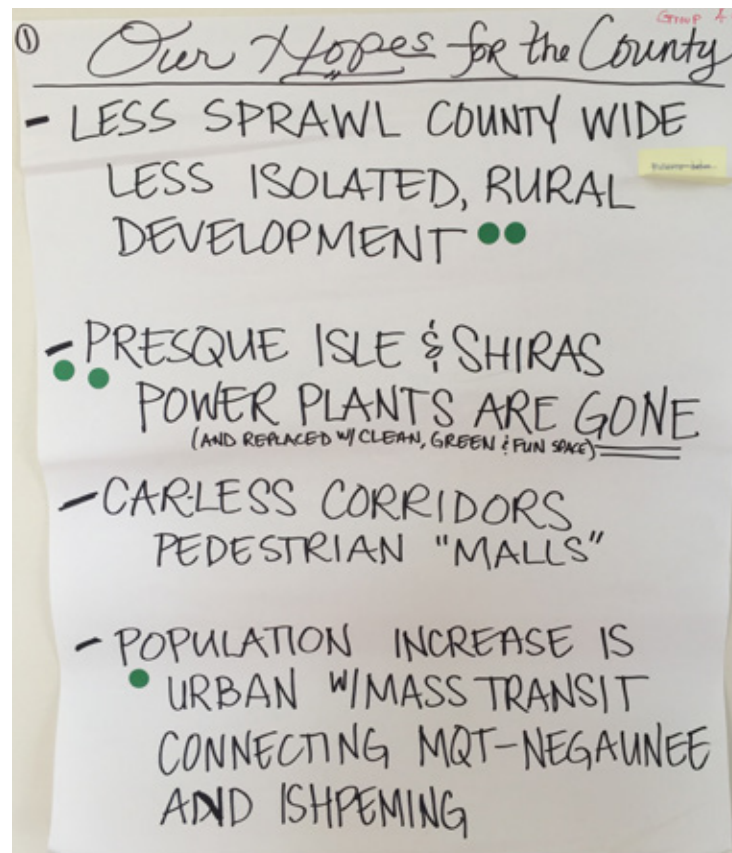 Group 4
①
Our Hopes for the County
- LESS SPRAWL COUNTY WIDE
LESS ISOLATED, RURAL
DEVELOPMENT
- PRESQUE ISLE & SHIRAS
POWER PLANTS ARE GONE
(AND REPLACED W/ CLEAN, GREEN & FUN SPACE)
- CAR-LESS CORRIDORS
PEDESTRIAN "MALLS"
- POPULATION INCREASE IS
URBAN W/MASS TRANSIT
CONNECTING MQT-NEGAUNEE
AND ISHPEMING